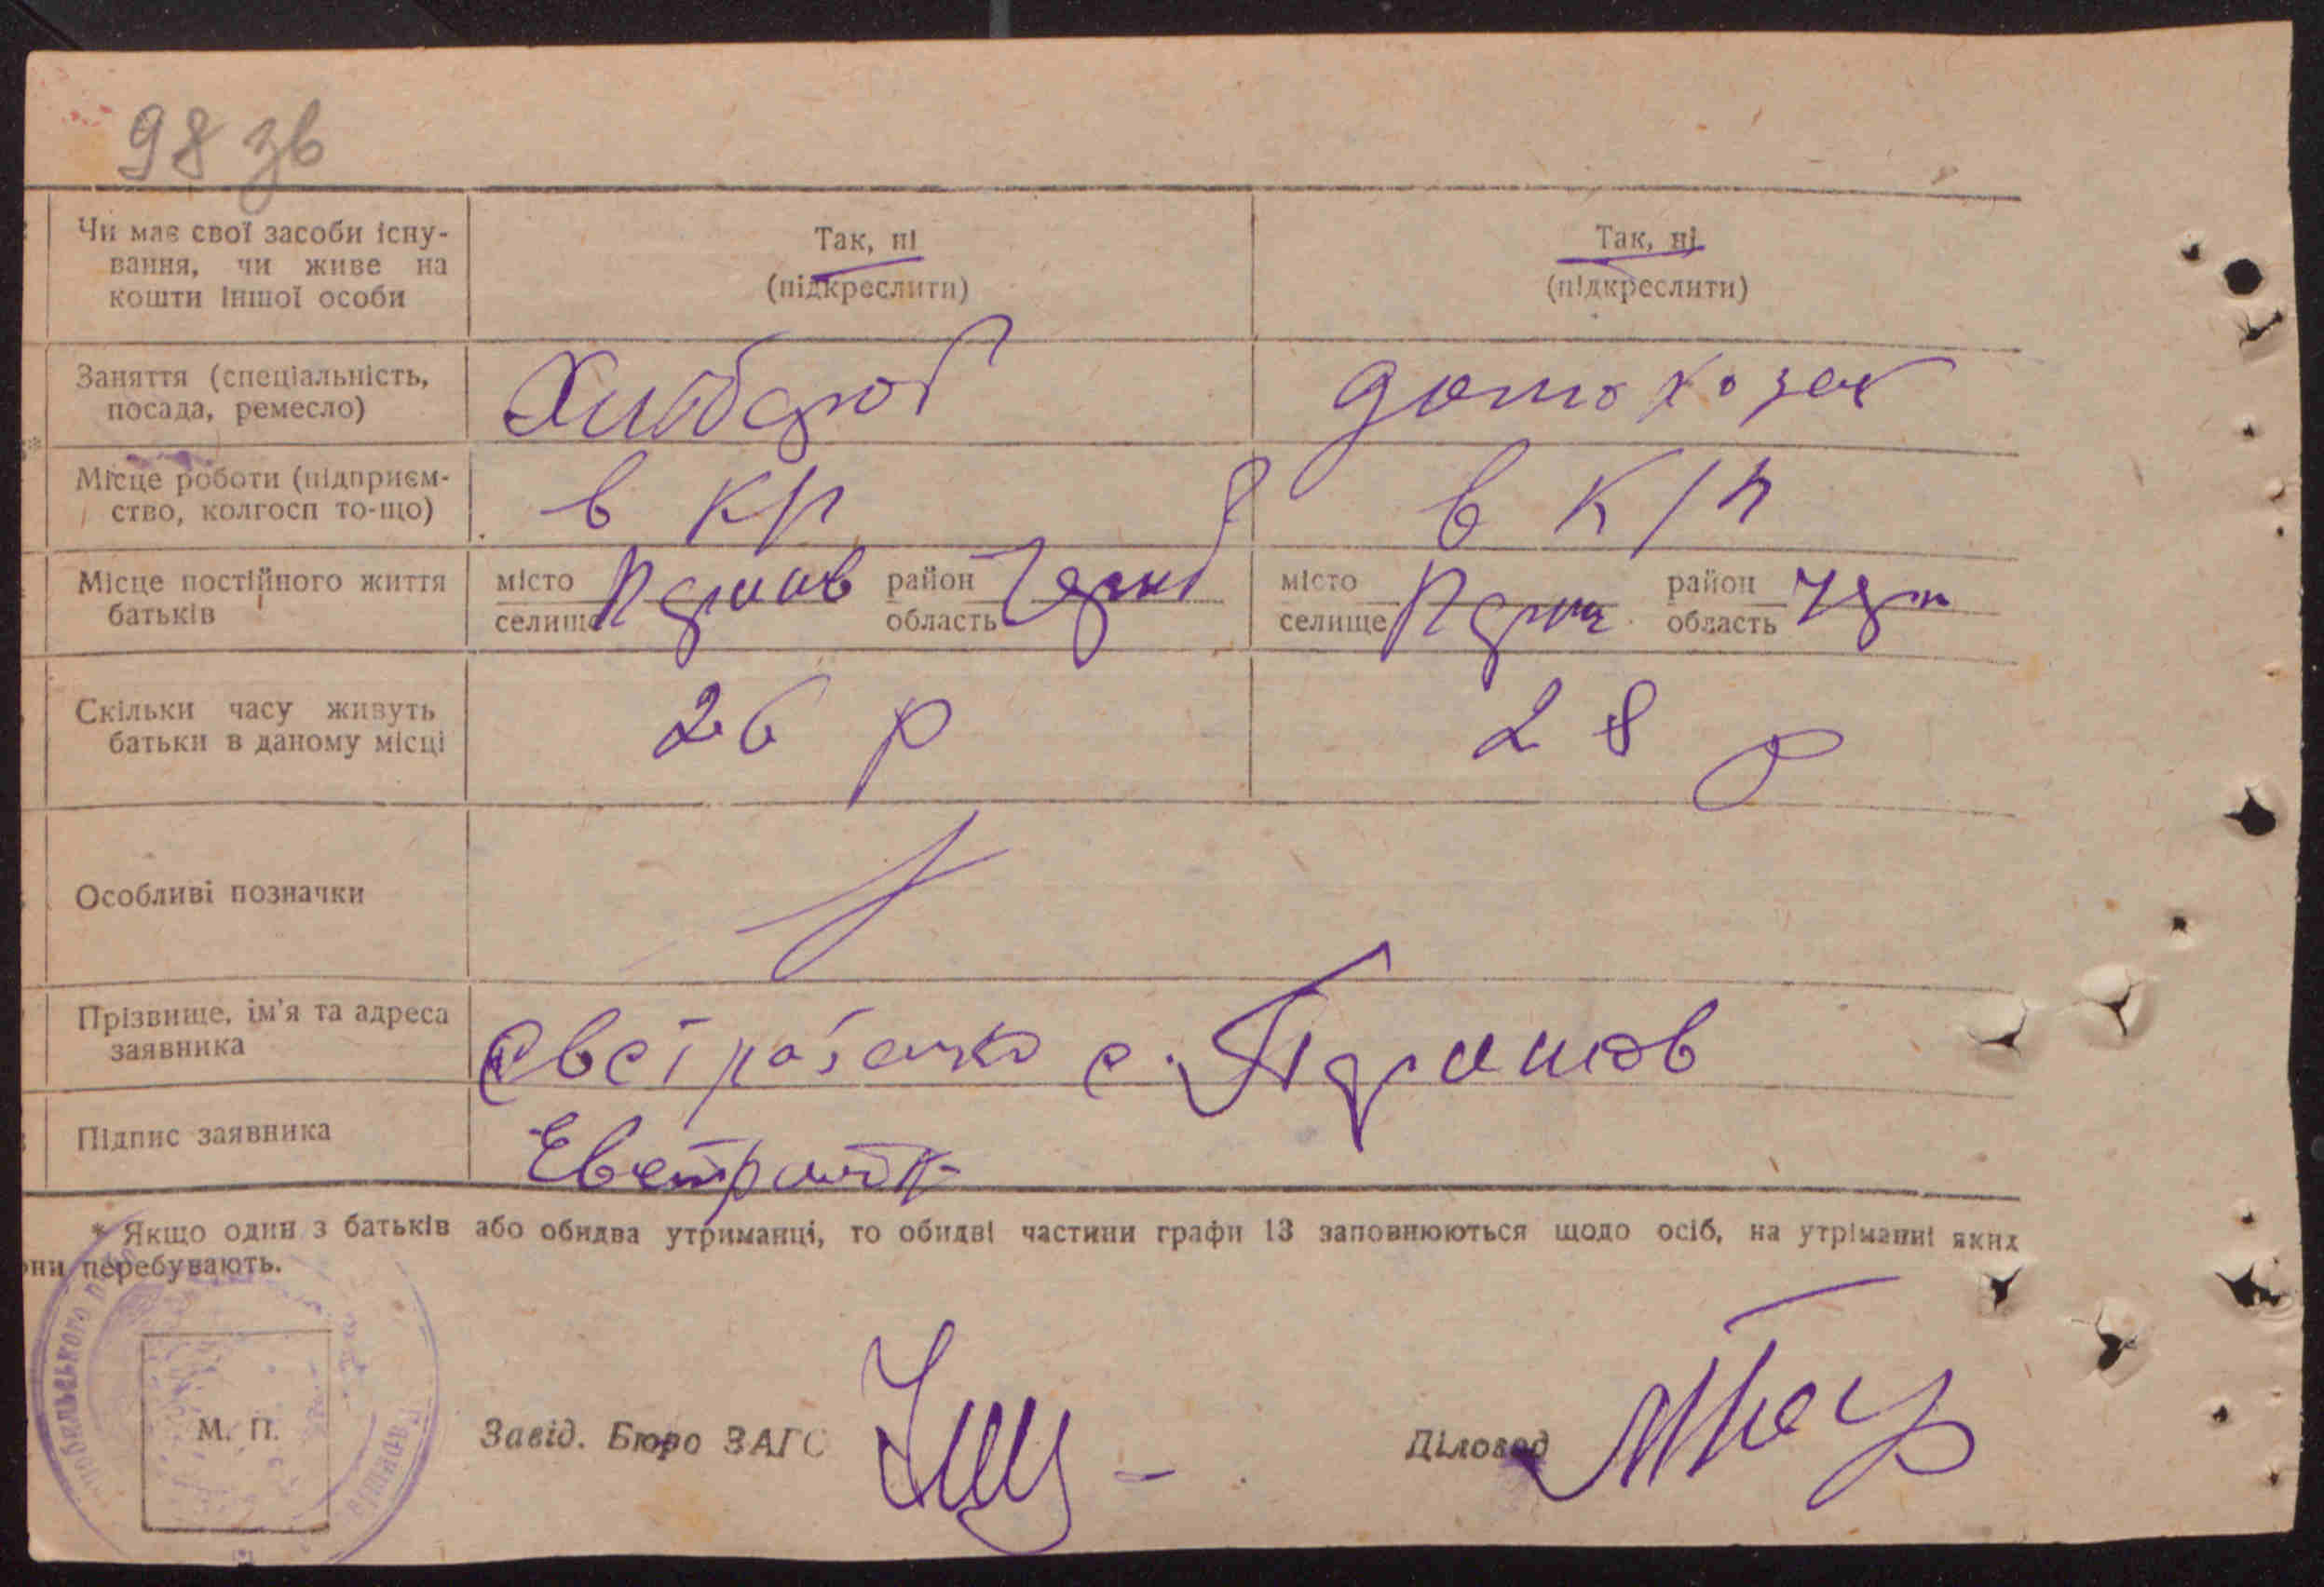 98 зв
Чи має свої засоби існу-
вання, чи живе на
кошти іншої особи
Так, ні
(підкреслити)
Так, ні
(підкреслити)
Заняття (спеціальність,
посада, ремесло)
Хлібороб
домохозяк
Місце роботи (підприєм-
ство, колгосп то-що)
в к/п
в к/п
Місце постійного життя
батьків
місто
селище
район
область
місто
селище
район
область
Скільки часу живуть
батьки в даному місці
26 р
28 р
Особливі позначки
Прізвище, ім'я та адреса
заявника
с.
Підпис заявника
* Якщо один з батьків або обидва утриманці, то обидві частини графи 13 заповнюються щодо осіб, на утріманні яких
они перебувають.
М. П.
Завід. Бюро ЗАГС
Діловод